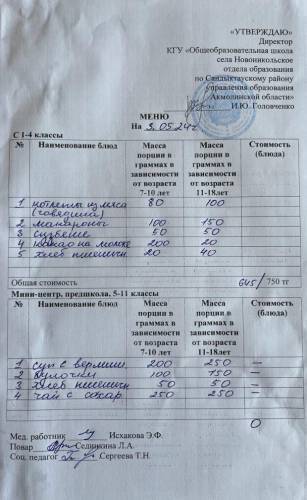 «УТВЕРЖДАЮ»
Директор
КГУ «Общеобразовательная школа
села Новоникольское
отдела образования
по Сандыктаускому району
управления образования
Акмолинской области»
И.Ю. Головченко
МЕНЮ
На 3.05.24г
С 1-4 классы
№ Наименование блюд Масса порции в граммах в зависимости от возраста 7-10 лет Масса порции в граммах в зависимости от возраста 11-18лет Стоимость (блюда)
1 котлеты из мяса (говядина) 80 100
2 макароны 100 150
3 50 50
4 какао на молоке 200 20
5 хлеб пшеничн 20 40
Общая стоимость 645/ 750 тг
Мини-центр, предшкола, 5-11 классы
№ Наименование блюд Масса порции в граммах в зависимости от возраста 7-10 лет Масса порции в граммах в зависимости от возраста 11-18лет Стоимость (блюда)
1 суп с вермиш 200 250 —
2 булочки 100 150 —
3 хлеб пшеничн 50 50 —
4 чай с сахар 250 250 —
0
Мед. работник Исхакова Э.Ф.
Повар Сединкина Л.А.
Соц. педагог Сергеева Т.Н.